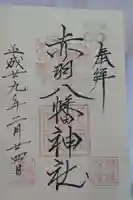 奉拝
赤羽八幡神社
平成廿九年二月廿四日